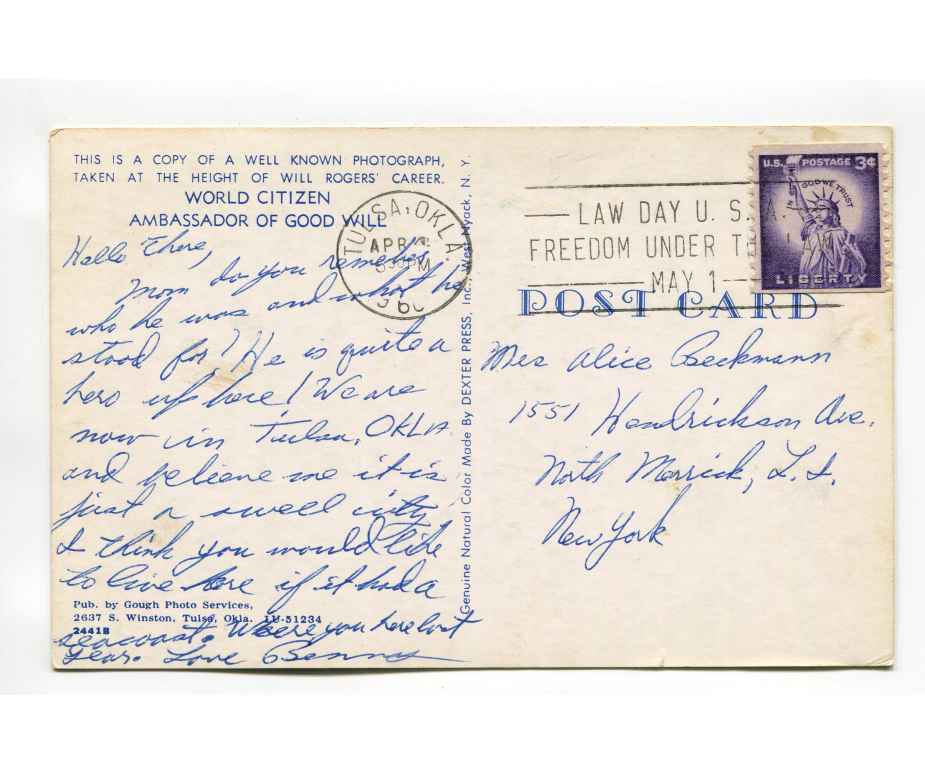 THIS IS A COPY OF A WELL KNOWN PHOTOGRAPH,
TAKEN AT THE HEIGHT OF WILL ROGERS' CAREER.
WORLD CITIZEN
AMBASSADOR OF GOOD WILL
Hello There,
Mom do you remember
who he was and what he
stood for? He is quite a
hero up here! We are
now in Tulsa, OKLA.
and believe me it is
just a swell city.
I think you would like
to live here if it had a
seacoast. Were you here last
year. Love
Pub. by Gough Photo Services,
2637 S. Winston, Tulsa, Okla. LU-51234
24418
Genuine Natural Color Made By DEXTER PRESS, Inc., West Nyack, N. Y.
TULSA, OKLA.
APR
PM
LAW DAY U. S. A.
FREEDOM UNDER THE LAW
MAY 1
U.S. POSTAGE 3¢
IN GOD WE TRUST
LIBERTY
POST CARD
Mrs Alice Beckmann
1551 Hendrickson Ave,
North Merrick, L. I.
New York